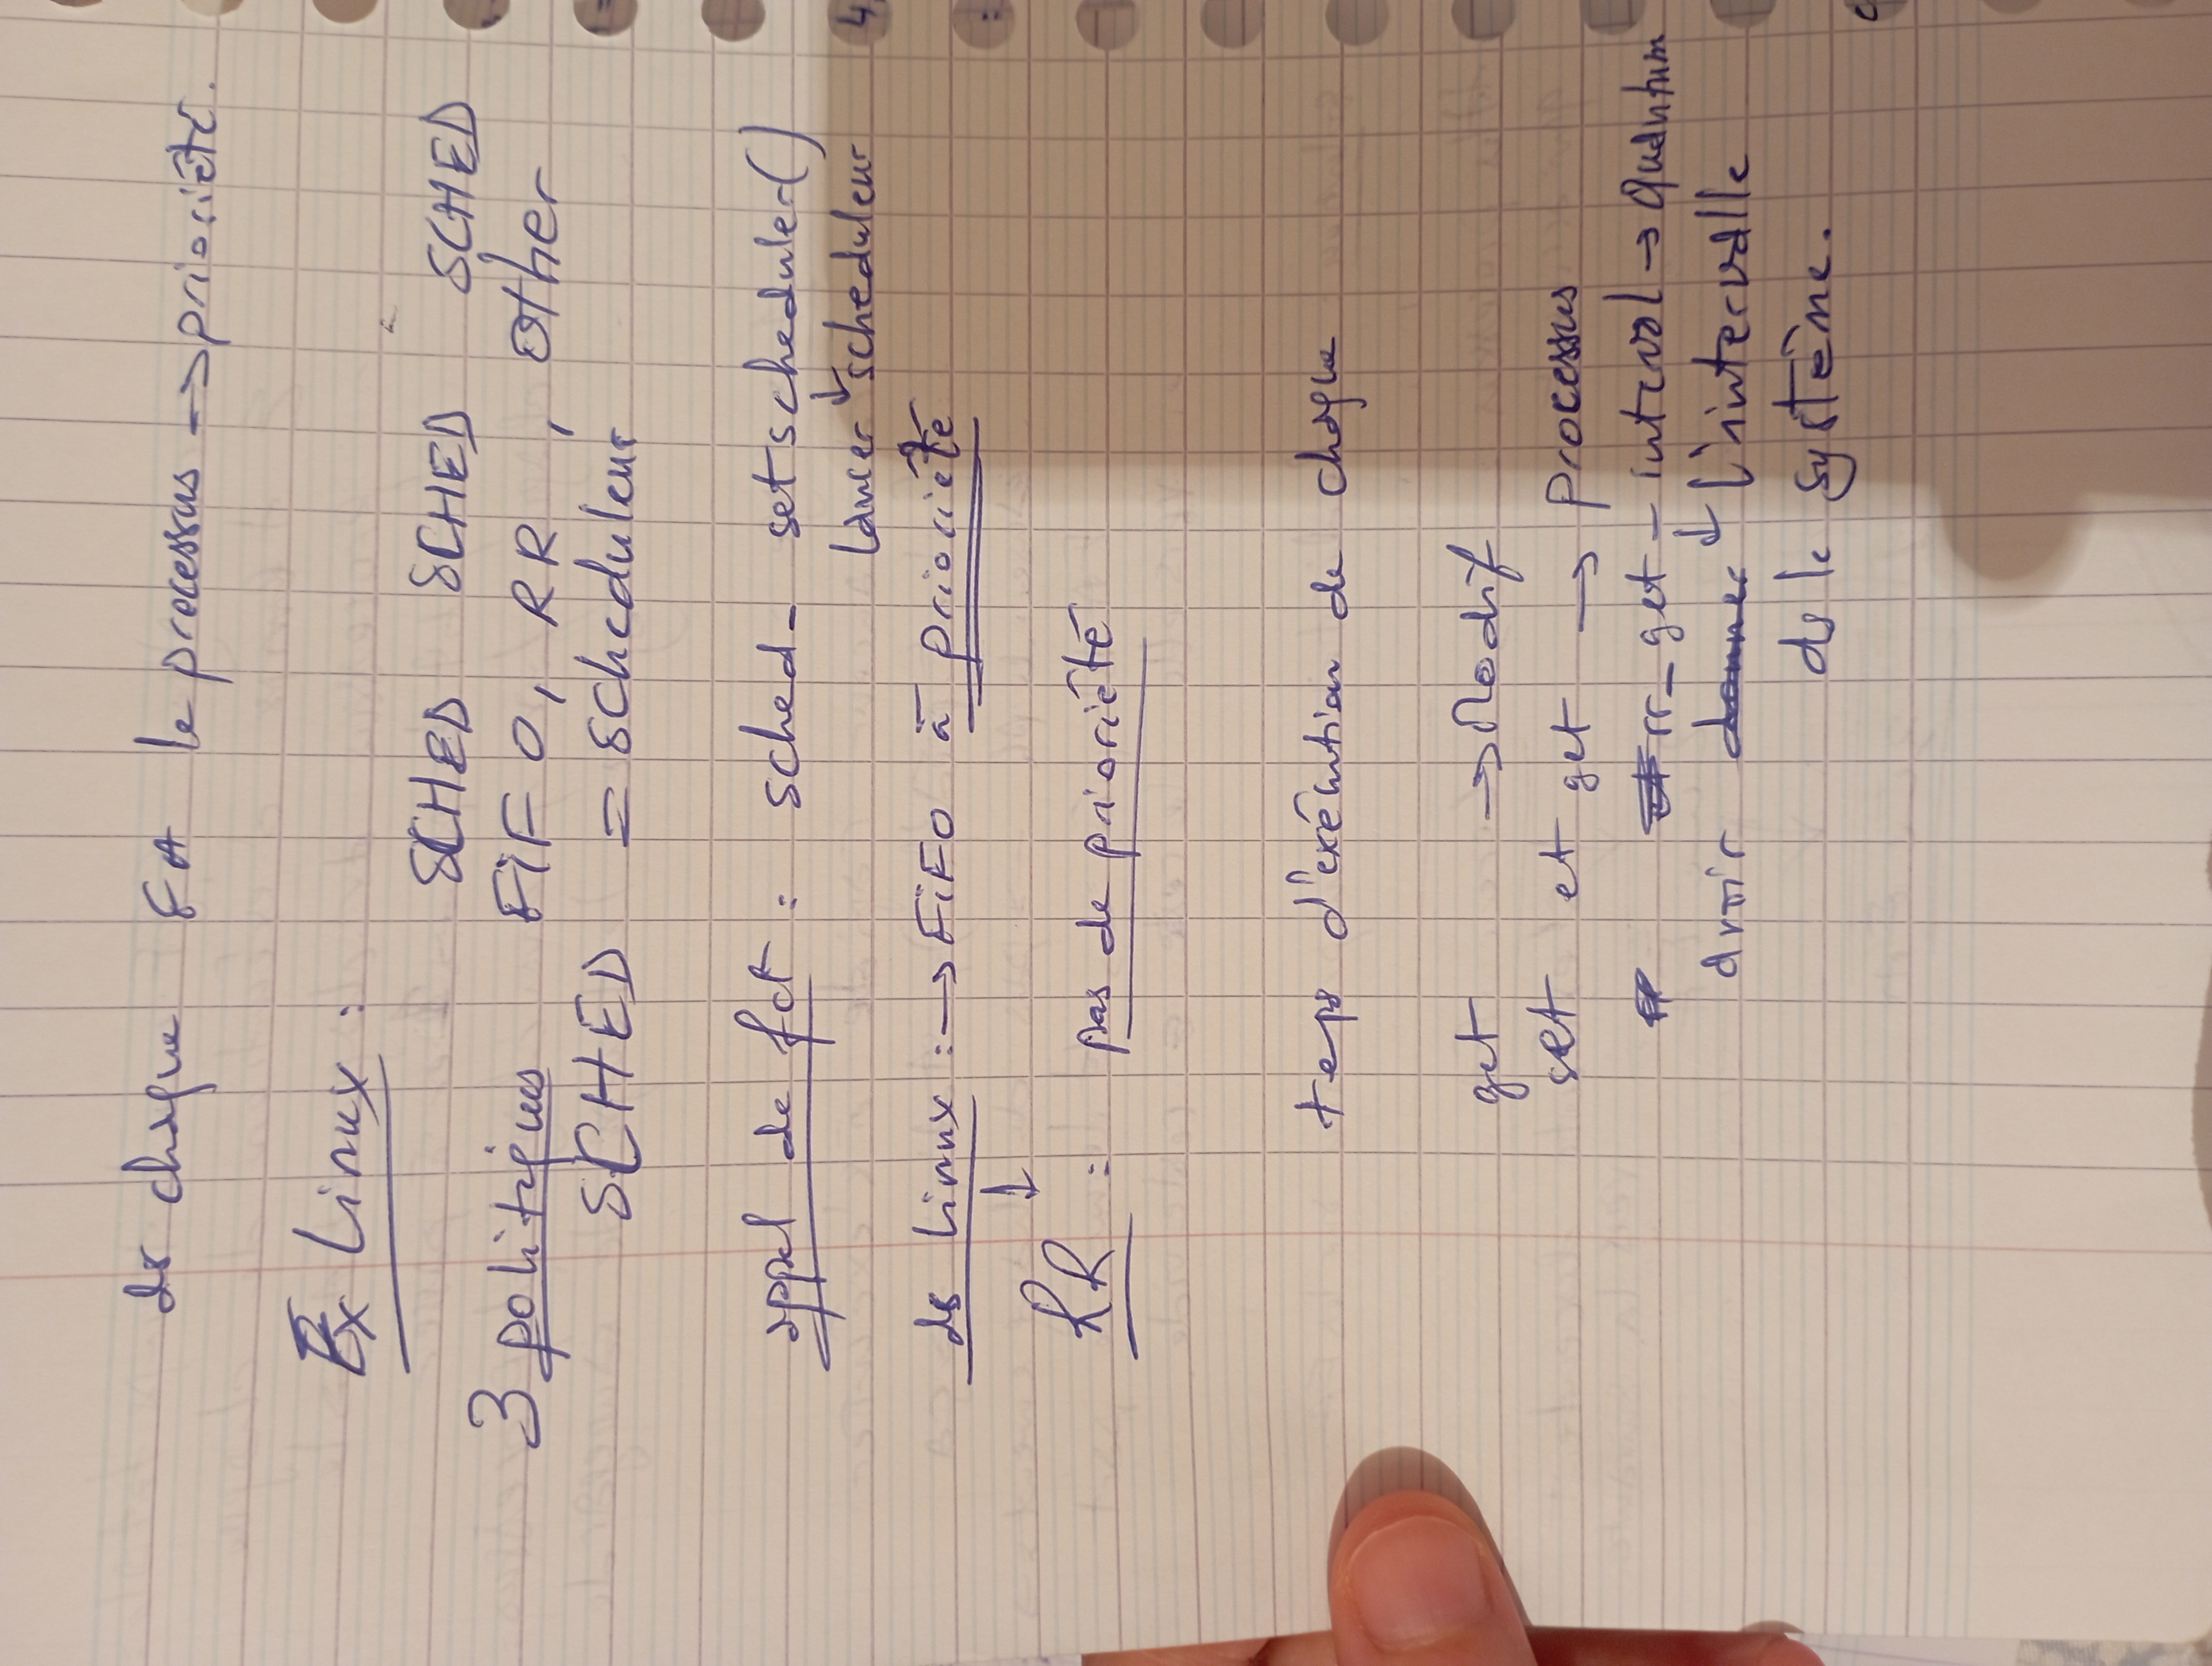 ds chaque FA le processus → prioriété.
Ex Linux :
SCHED SCHED SCHED
3 politiques FiFO, RR, Other
SCHED = scheduleur
appel de fct : sched_ setscheduler()
Lancer ↓ scheduleur
ds Linux : → FiFO à prioriété
↓
RR : pas de prioriété
temps d'exécution de chaque
get → Modif
set et get → processus
rr_get_interval → Quantum
avoir donner ↓ l'intervalle
ds le système.